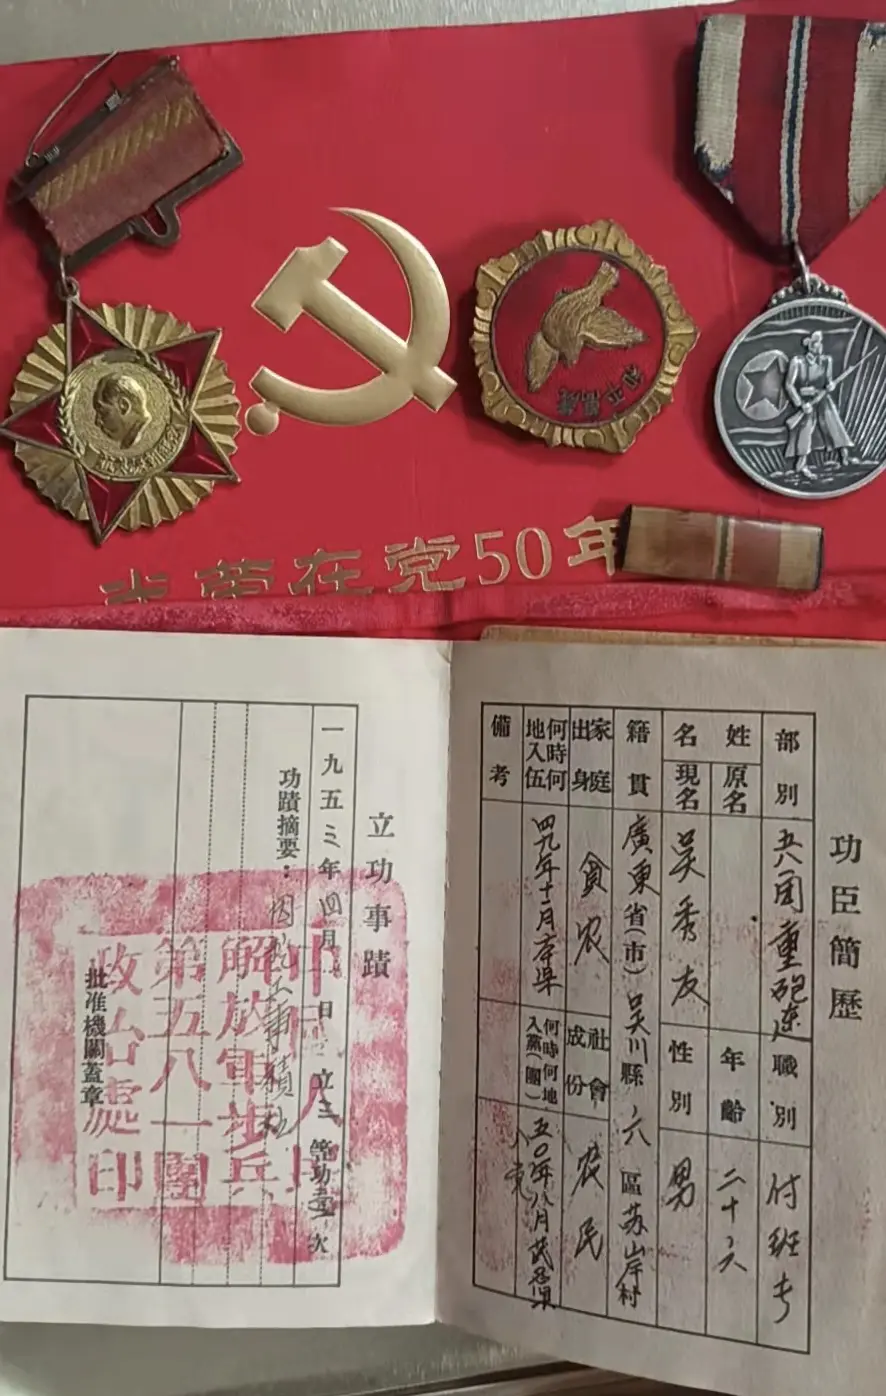 光荣在党50年
和平萬歲
功臣簡歷
部別 重砲连 職別 付班长
姓名 原名 年齡 二十六
現名 吴秀友 性別 男
籍貫 廣東省(市) 吴川縣 六 區 苏岸村
家庭出身 貧农 社會成份 农民
何時何地入伍 四九年十一月本県 何時何地入黨(團) 五〇年八月茂名県入党
備考
立功事蹟
一九五三年四月 日 立三等功壹次
功蹟摘要：因 工事積极
批准機關蓋章
中國人民
解放軍步兵
第五八一團
政治處印